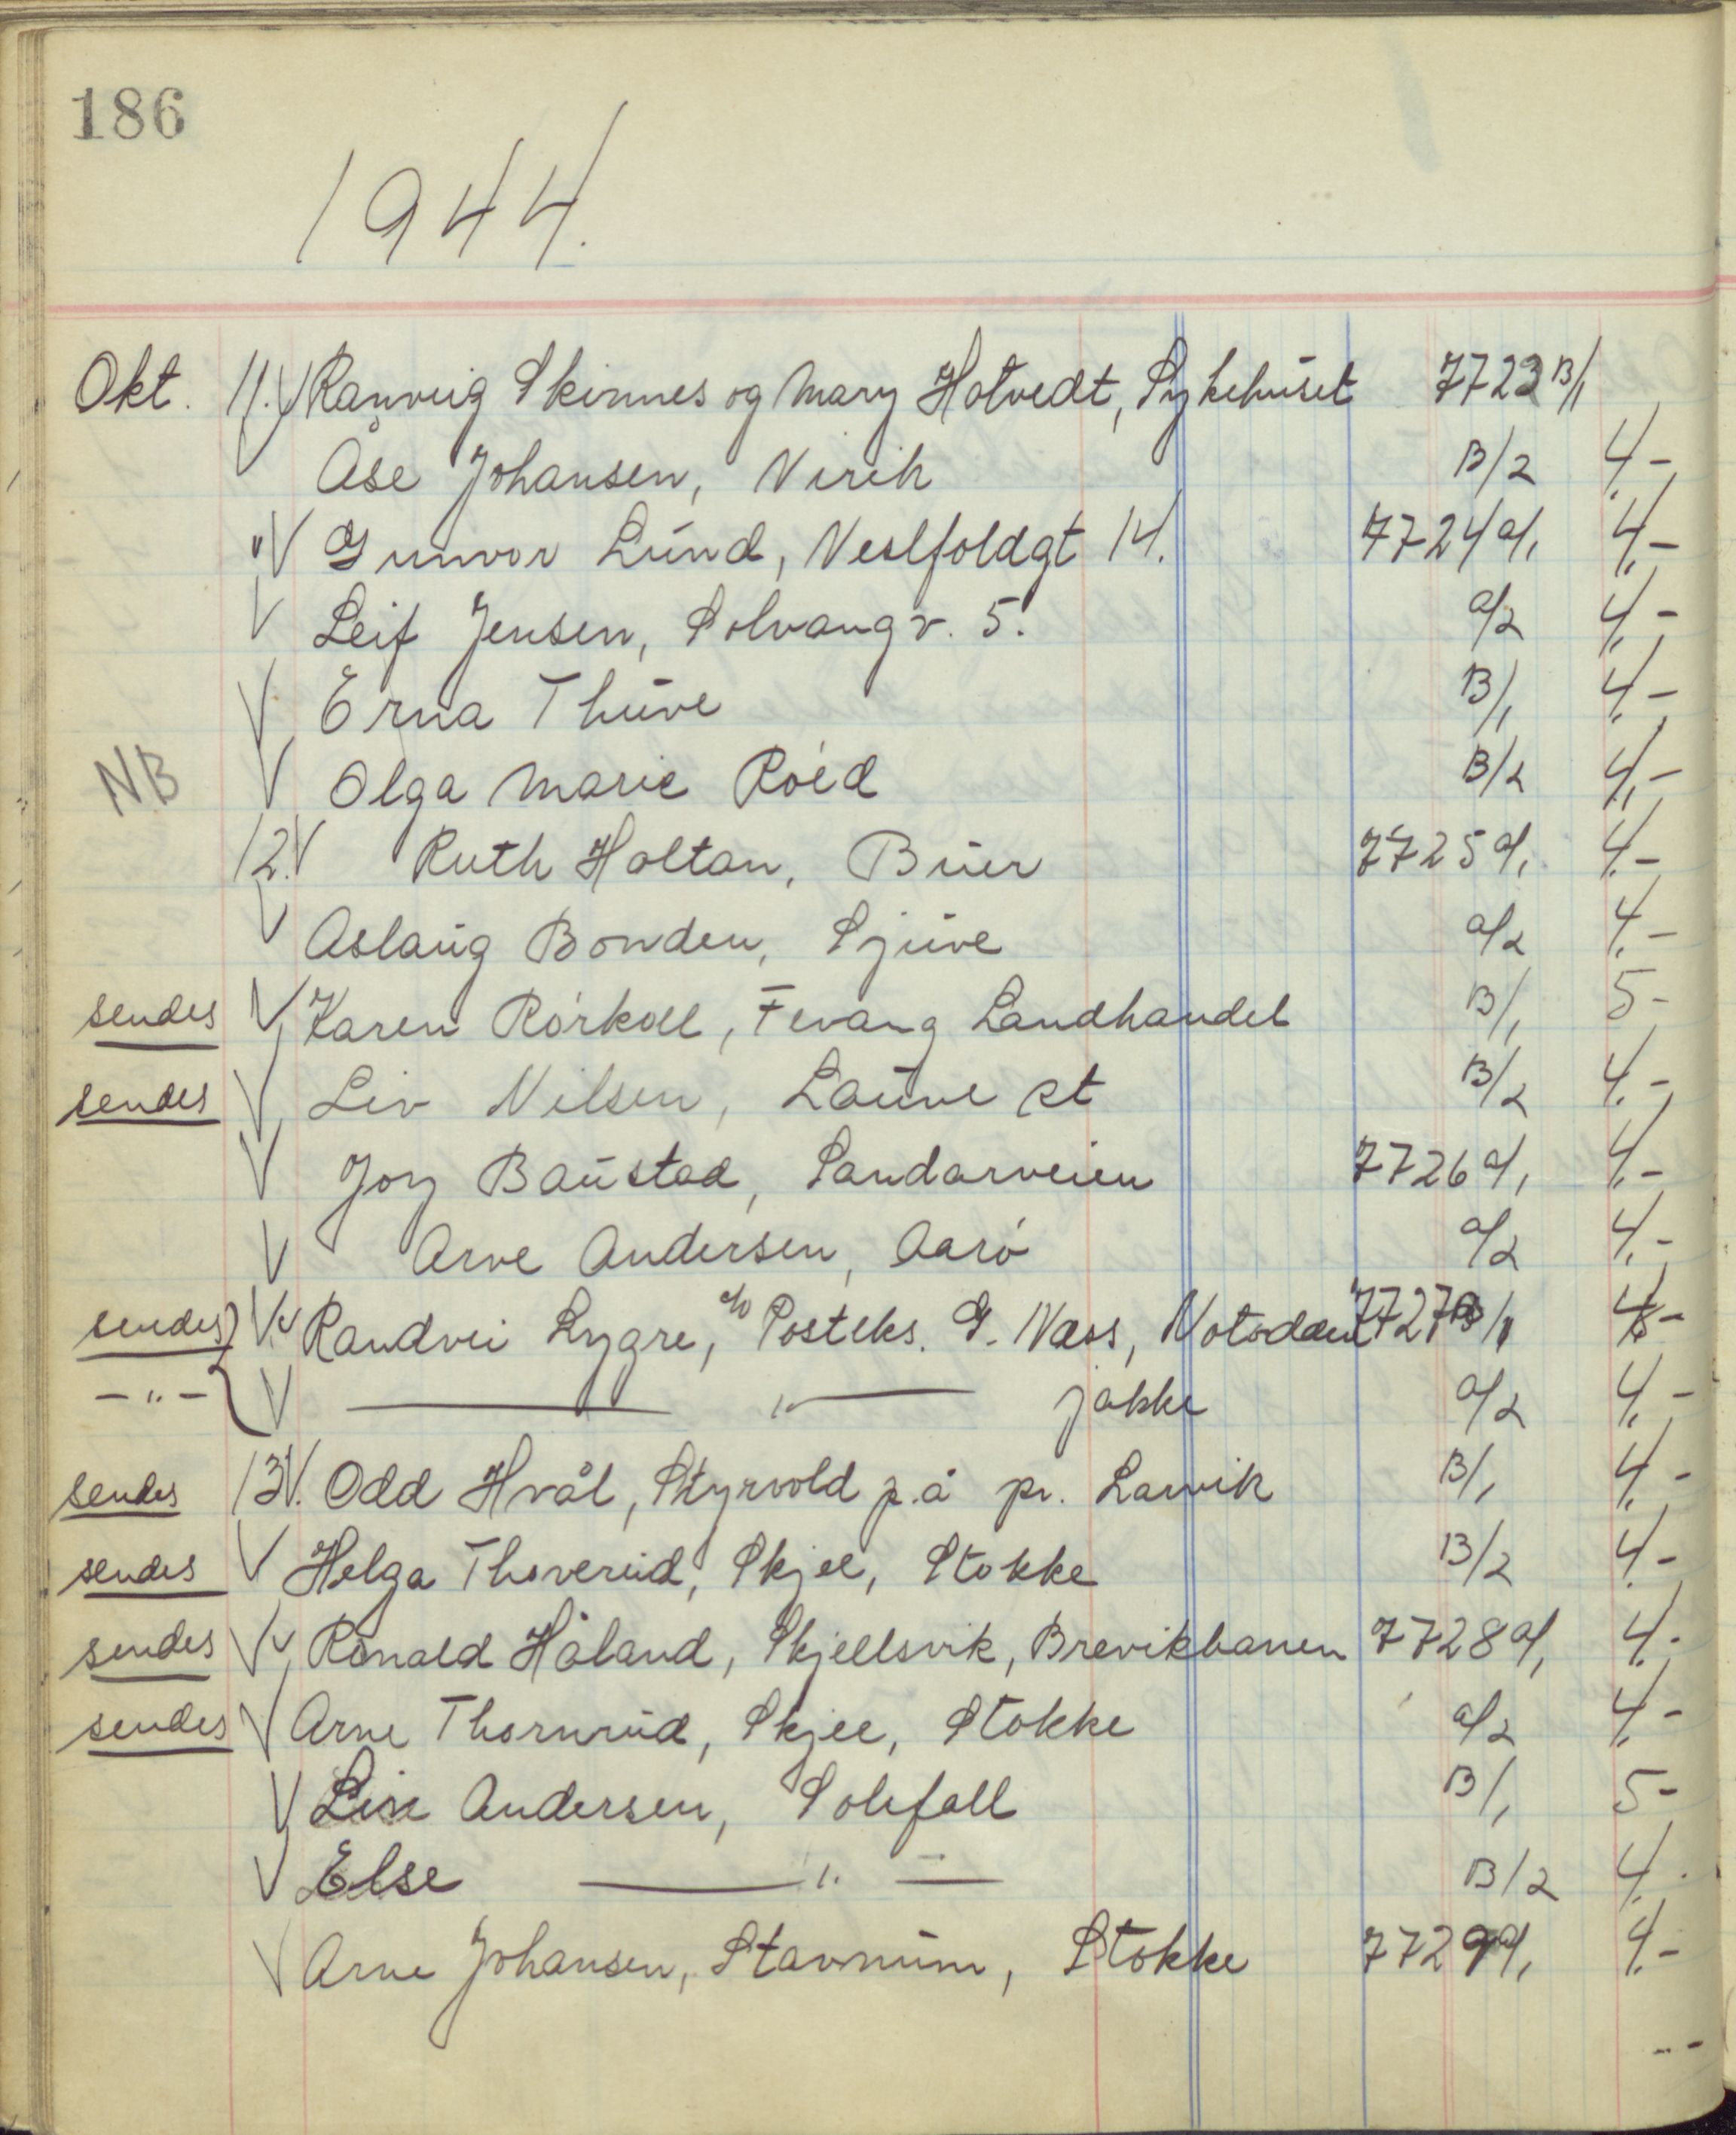 186
1944.
Okt. 11. V Ranveig Skinnes og Mary Hotvedt, Sykehuset 7723 B/1
Åse Johansen, Virik B/2 4,-
" V Gunvor Lund, Vestfoldgt 14. 7724 a/1 4,-
V Leif Jensen, Solvangv. 5. a/2 4,-
V Erna Thuve B/1 4,-
NB V Olga Marie Röed B/2 4,-
12. V Ruth Holtan, Buer 7725 a/1 4,-
V Aslaug Bonden, Sjuve a/2 4,-
sendes V Karen Rörkoll, Fevang Landhandel B/1 5-
sendes V Liv Nilsen, Lauve st B/2 4,-
V Joy Baustad, Sandarveien 7726 a/1 4,-
V Arve Andersen, Aarö a/2 4,-
sendes V Randvei Lygre, c/o Posteks. G. Næss, Notodden 7727 B/1 4,-
- " - V — " — jakke a/2 4,-
sendes 13. V Odd Hvål, Styrvold p.å pr. Larvik B/1 4,-
sendes V Helga Thoverud, Skjee, Stokke B/2 4,-
sendes V Ronald Håland, Skjellsvik, Brevikbanen 7728 a/1 4,-
sendes V Arne Thornrud, Skjee, Stokke a/2 4,-
V Lise Andersen, Solefall B/1 5-
V Else — " — B/2 4,-
V Arne Johansen, Stavnum, Stokke 7729 a/1 4,-